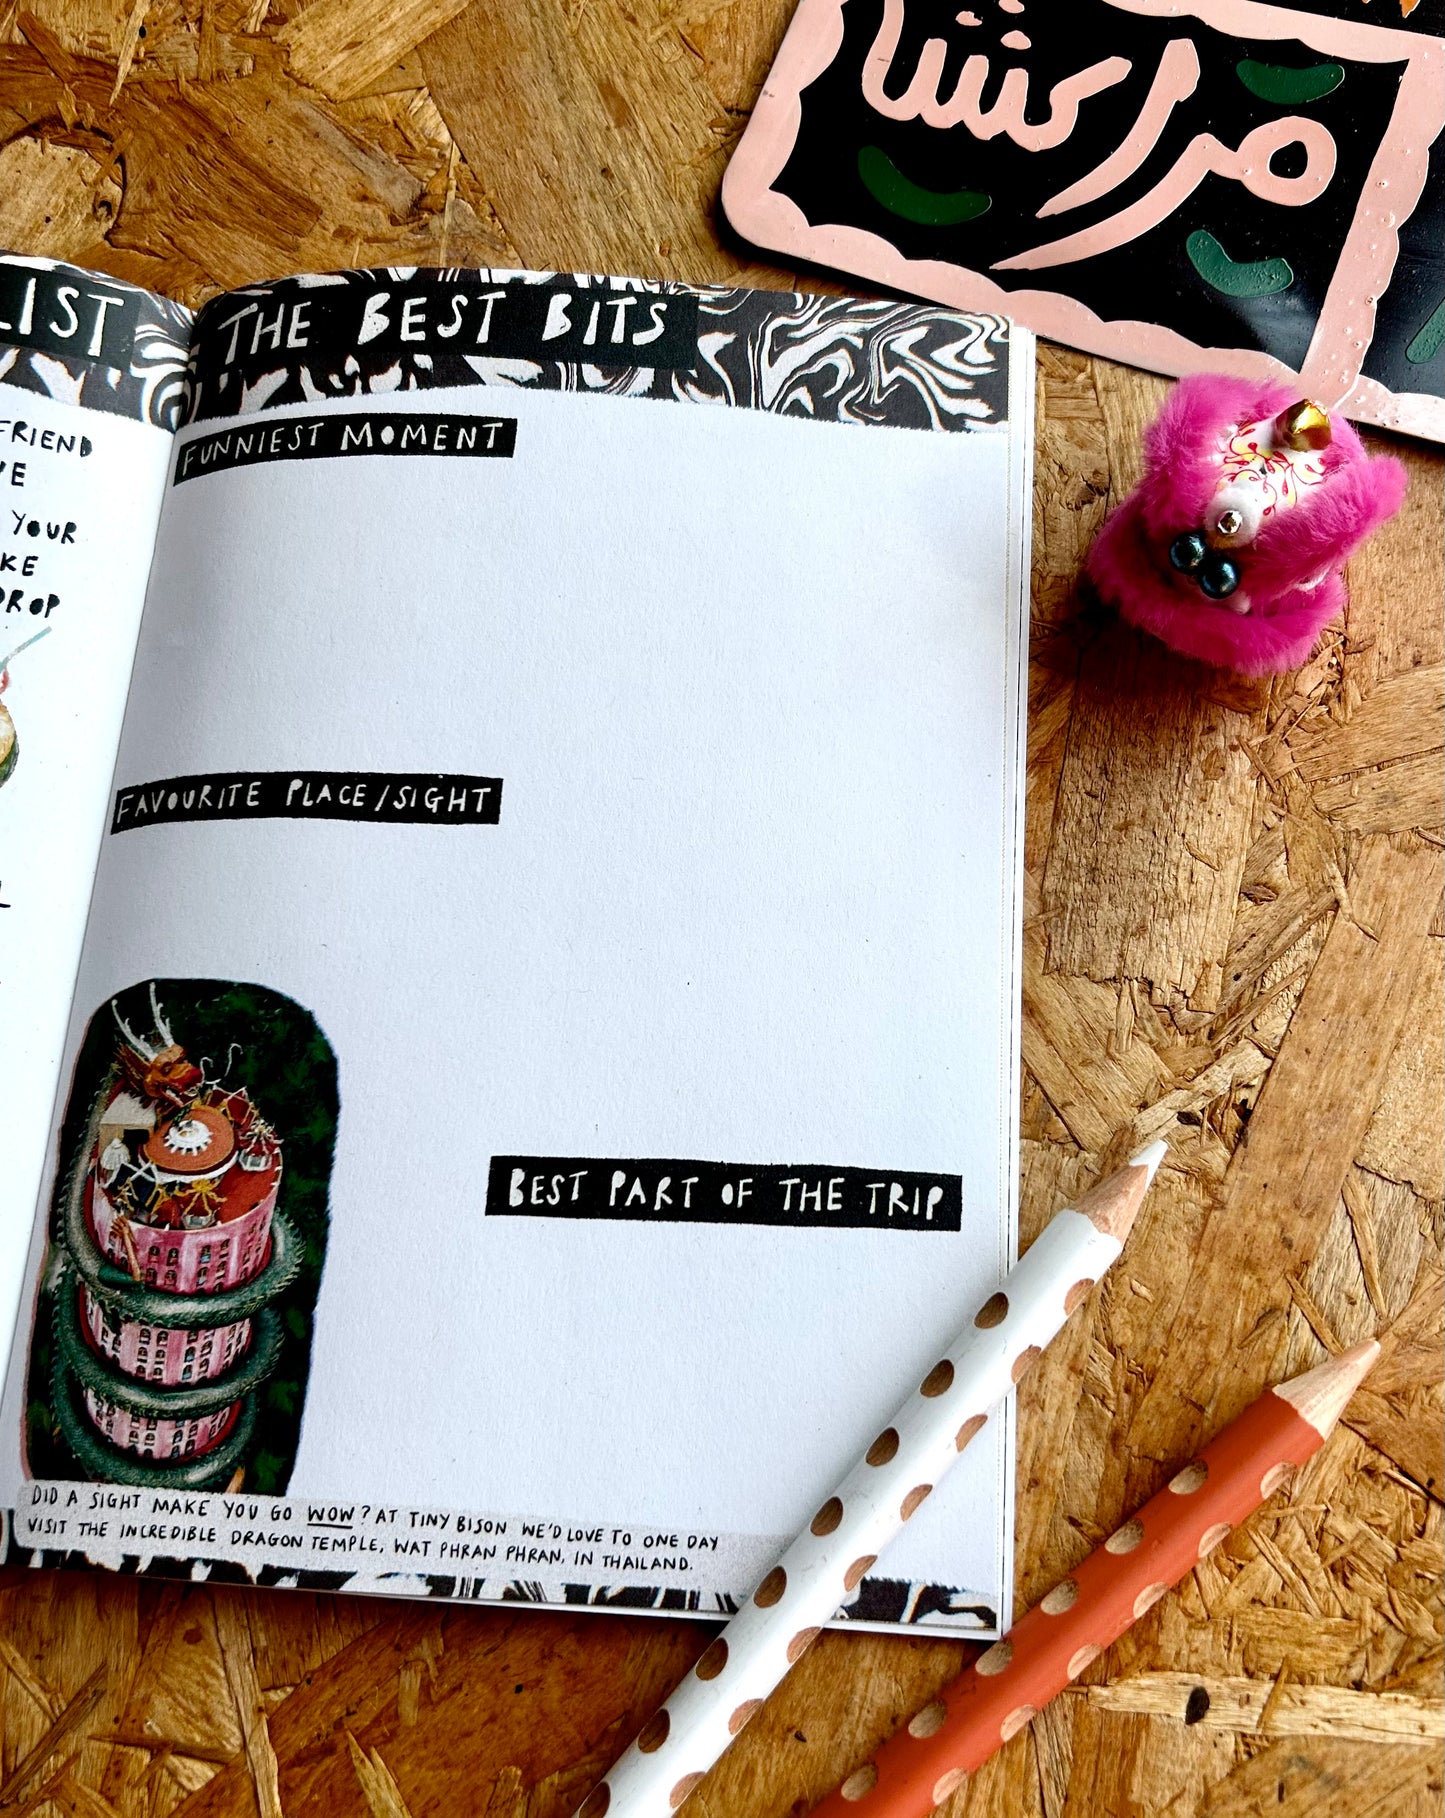 مراكش
LIST
FRIEND
YOUR
KE
DROP
THE BEST BITS
FUNNIEST MOMENT
FAVOURITE PLACE/SIGHT
BEST PART OF THE TRIP
DID A SIGHT MAKE YOU GO WOW? AT TINY BISON WE'D LOVE TO ONE DAY
VISIT THE INCREDIBLE DRAGON TEMPLE, WAT PHRAN PHRAN, IN THAILAND.